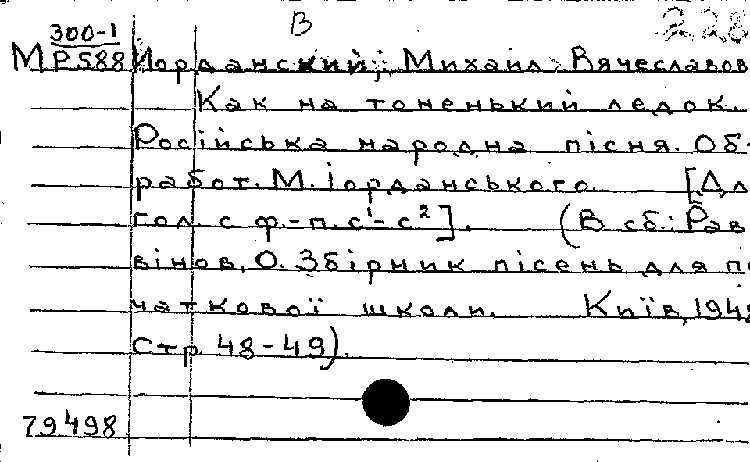 В 228
300-1
М Р588 Иорданский, Михаил Вячеславов
Как на тоненький ледок.
Російська народна пісня. Об-
работ. М. Іорданського. [Дл
гол с ф.-п. с¹-с²]. (В сб.: Рав
вінов, О. Збірник пісень для по
чаткової школи. Київ, 1948
Стр 48-49).
79498